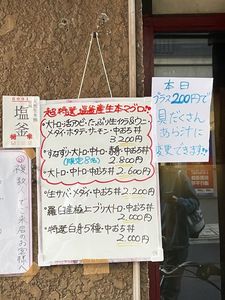 超特選 塩釜産生本マグロ!!
・大トロ・活うに・たっぷり生イクラ&ウニ・
メダイ・ホタテ・サーモン・中おち丼
3,200円
・すなずり・大トロ・中トロ・中おち丼
(限定8名) 2,800円
・大トロ・中トロ・中おち丼 2,600円
・生サバ・メダイ・中おち丼 2,200円
・羅臼産極上ブリ大トロ・中おち丼
2,000円
・特選白身5種・中おち丼
2,000円
本日
プラス200円で
具だくさん
あら汁に
変更できます!!
塩釜
複数でご来店のお客様へ